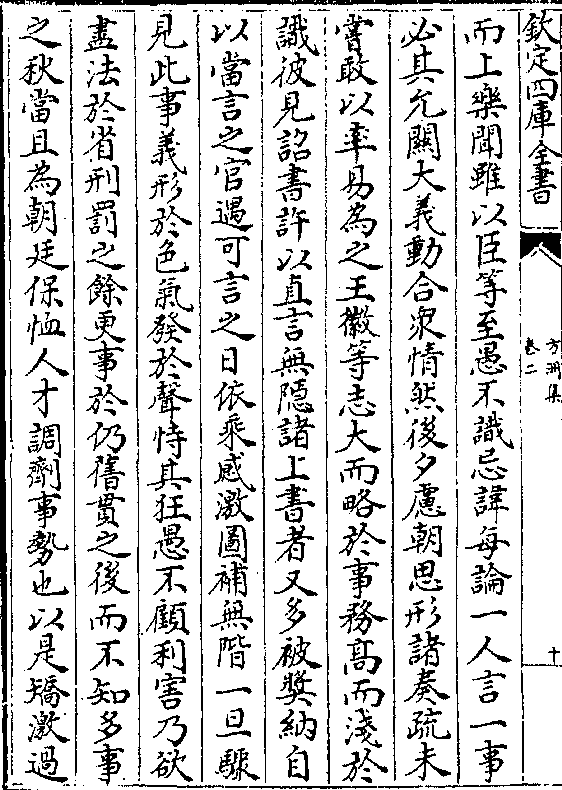 欽定四庫全書
方洲集
卷二
十
而上樂聞雖以臣等至愚不識忌諱每論一人言一事
必其允關大義動合衆情然後夕慮朝思形諸奏疏未
嘗敢以率易為之王徽等志大而略於事務髙而淺於
識彼見詔書許以直言無隠諸上書者又多被奬納自
以當言之官遇可言之日依乘感激圖補無階一旦驟
見此事義形於色氣發於聲恃其狂愚不顧利害乃欲
盡法於省刑罰之餘更事於仍舊貫之後而不知多事
之秋當且為朝廷保恤人才調劑事勢也以是矯激過